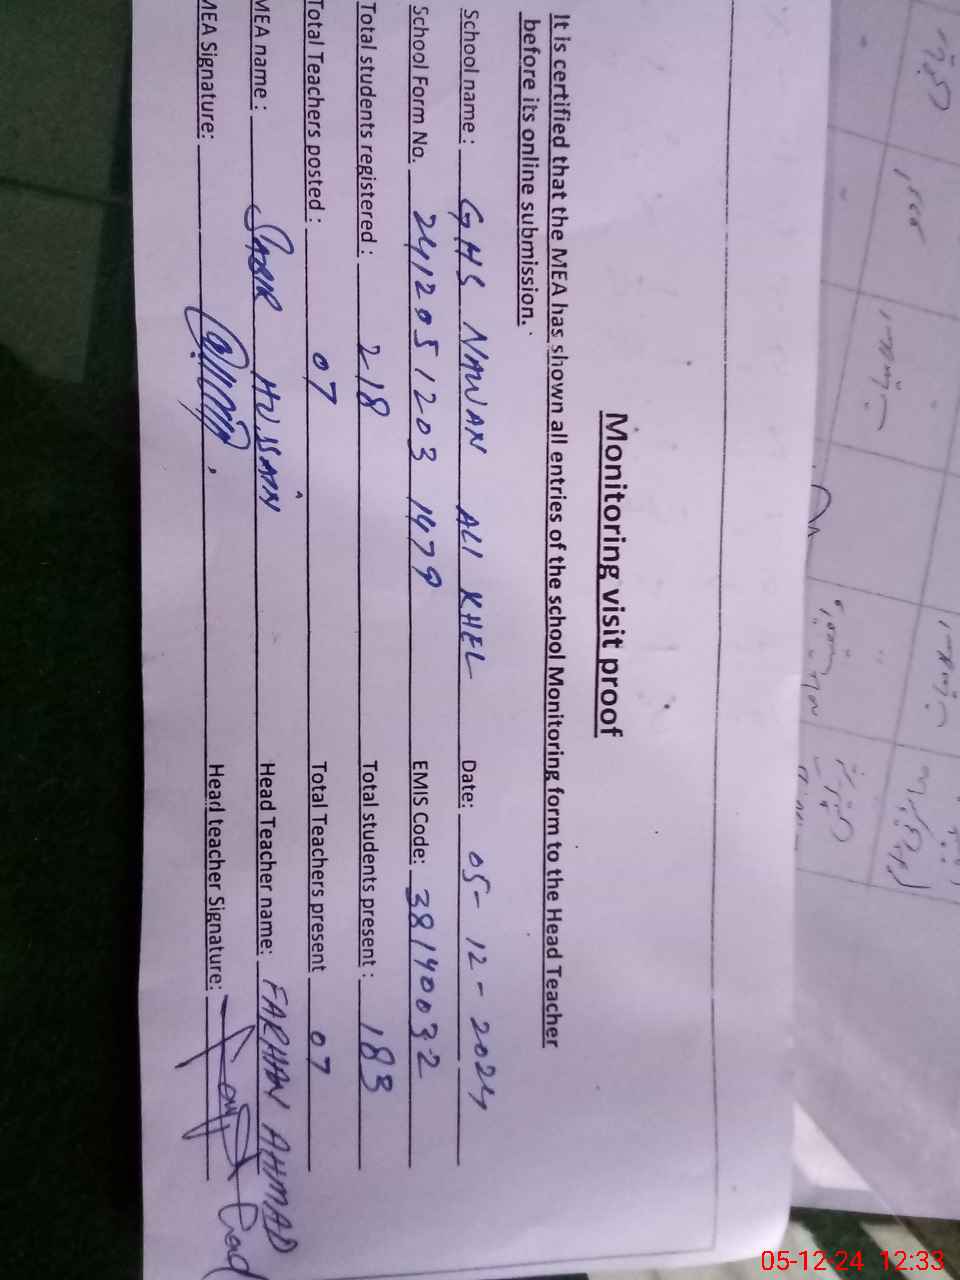 Monitoring visit proof
It is certified that the MEA has shown all entries of the school Monitoring form to the Head Teacher
before its online submission.
School name : GHS NAWAN ALI KHEL Date: 05-12-2024
School Form No. 241205 1203 1479 EMIS Code: 38140032
Total students registered : 218 Total students present : 183
Total Teachers posted : 07 Total Teachers present 07
MEA name : SABIR HUSSAIN Head Teacher name: FARHAN AHMAD
MEA Signature: Head teacher Signature:
05-12-24 12:33